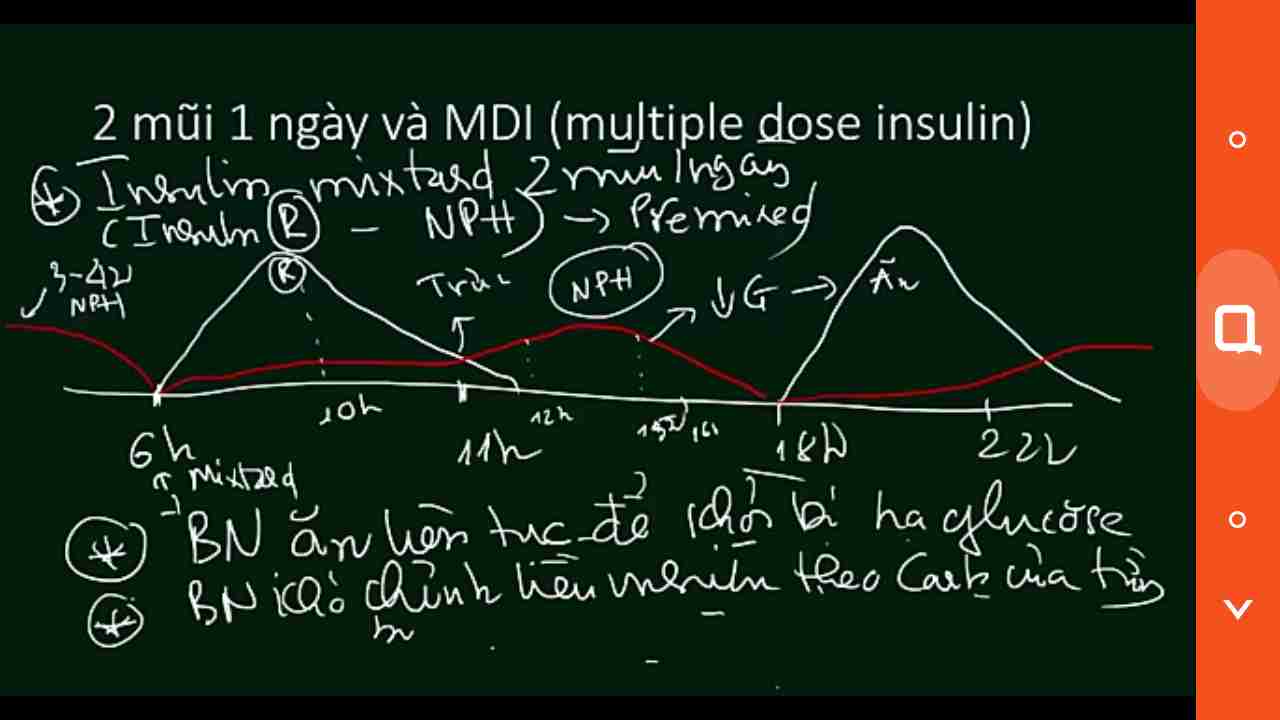 2 mũi 1 ngày và MDI (multiple dose insulin)
Insulin mixtard 2 mũi 1 ngay
(Insulin R - NPH) → Premixed
3-4h
NPH
R
Trưa
NPH
↓G → Ăn
10h
12h
15h 16h
6h
11h
18h
22h
↑ mixtard
BN ăn liên tục để khỏi bị hạ glucose
BN khó chỉnh liều insulin theo Carb của từng